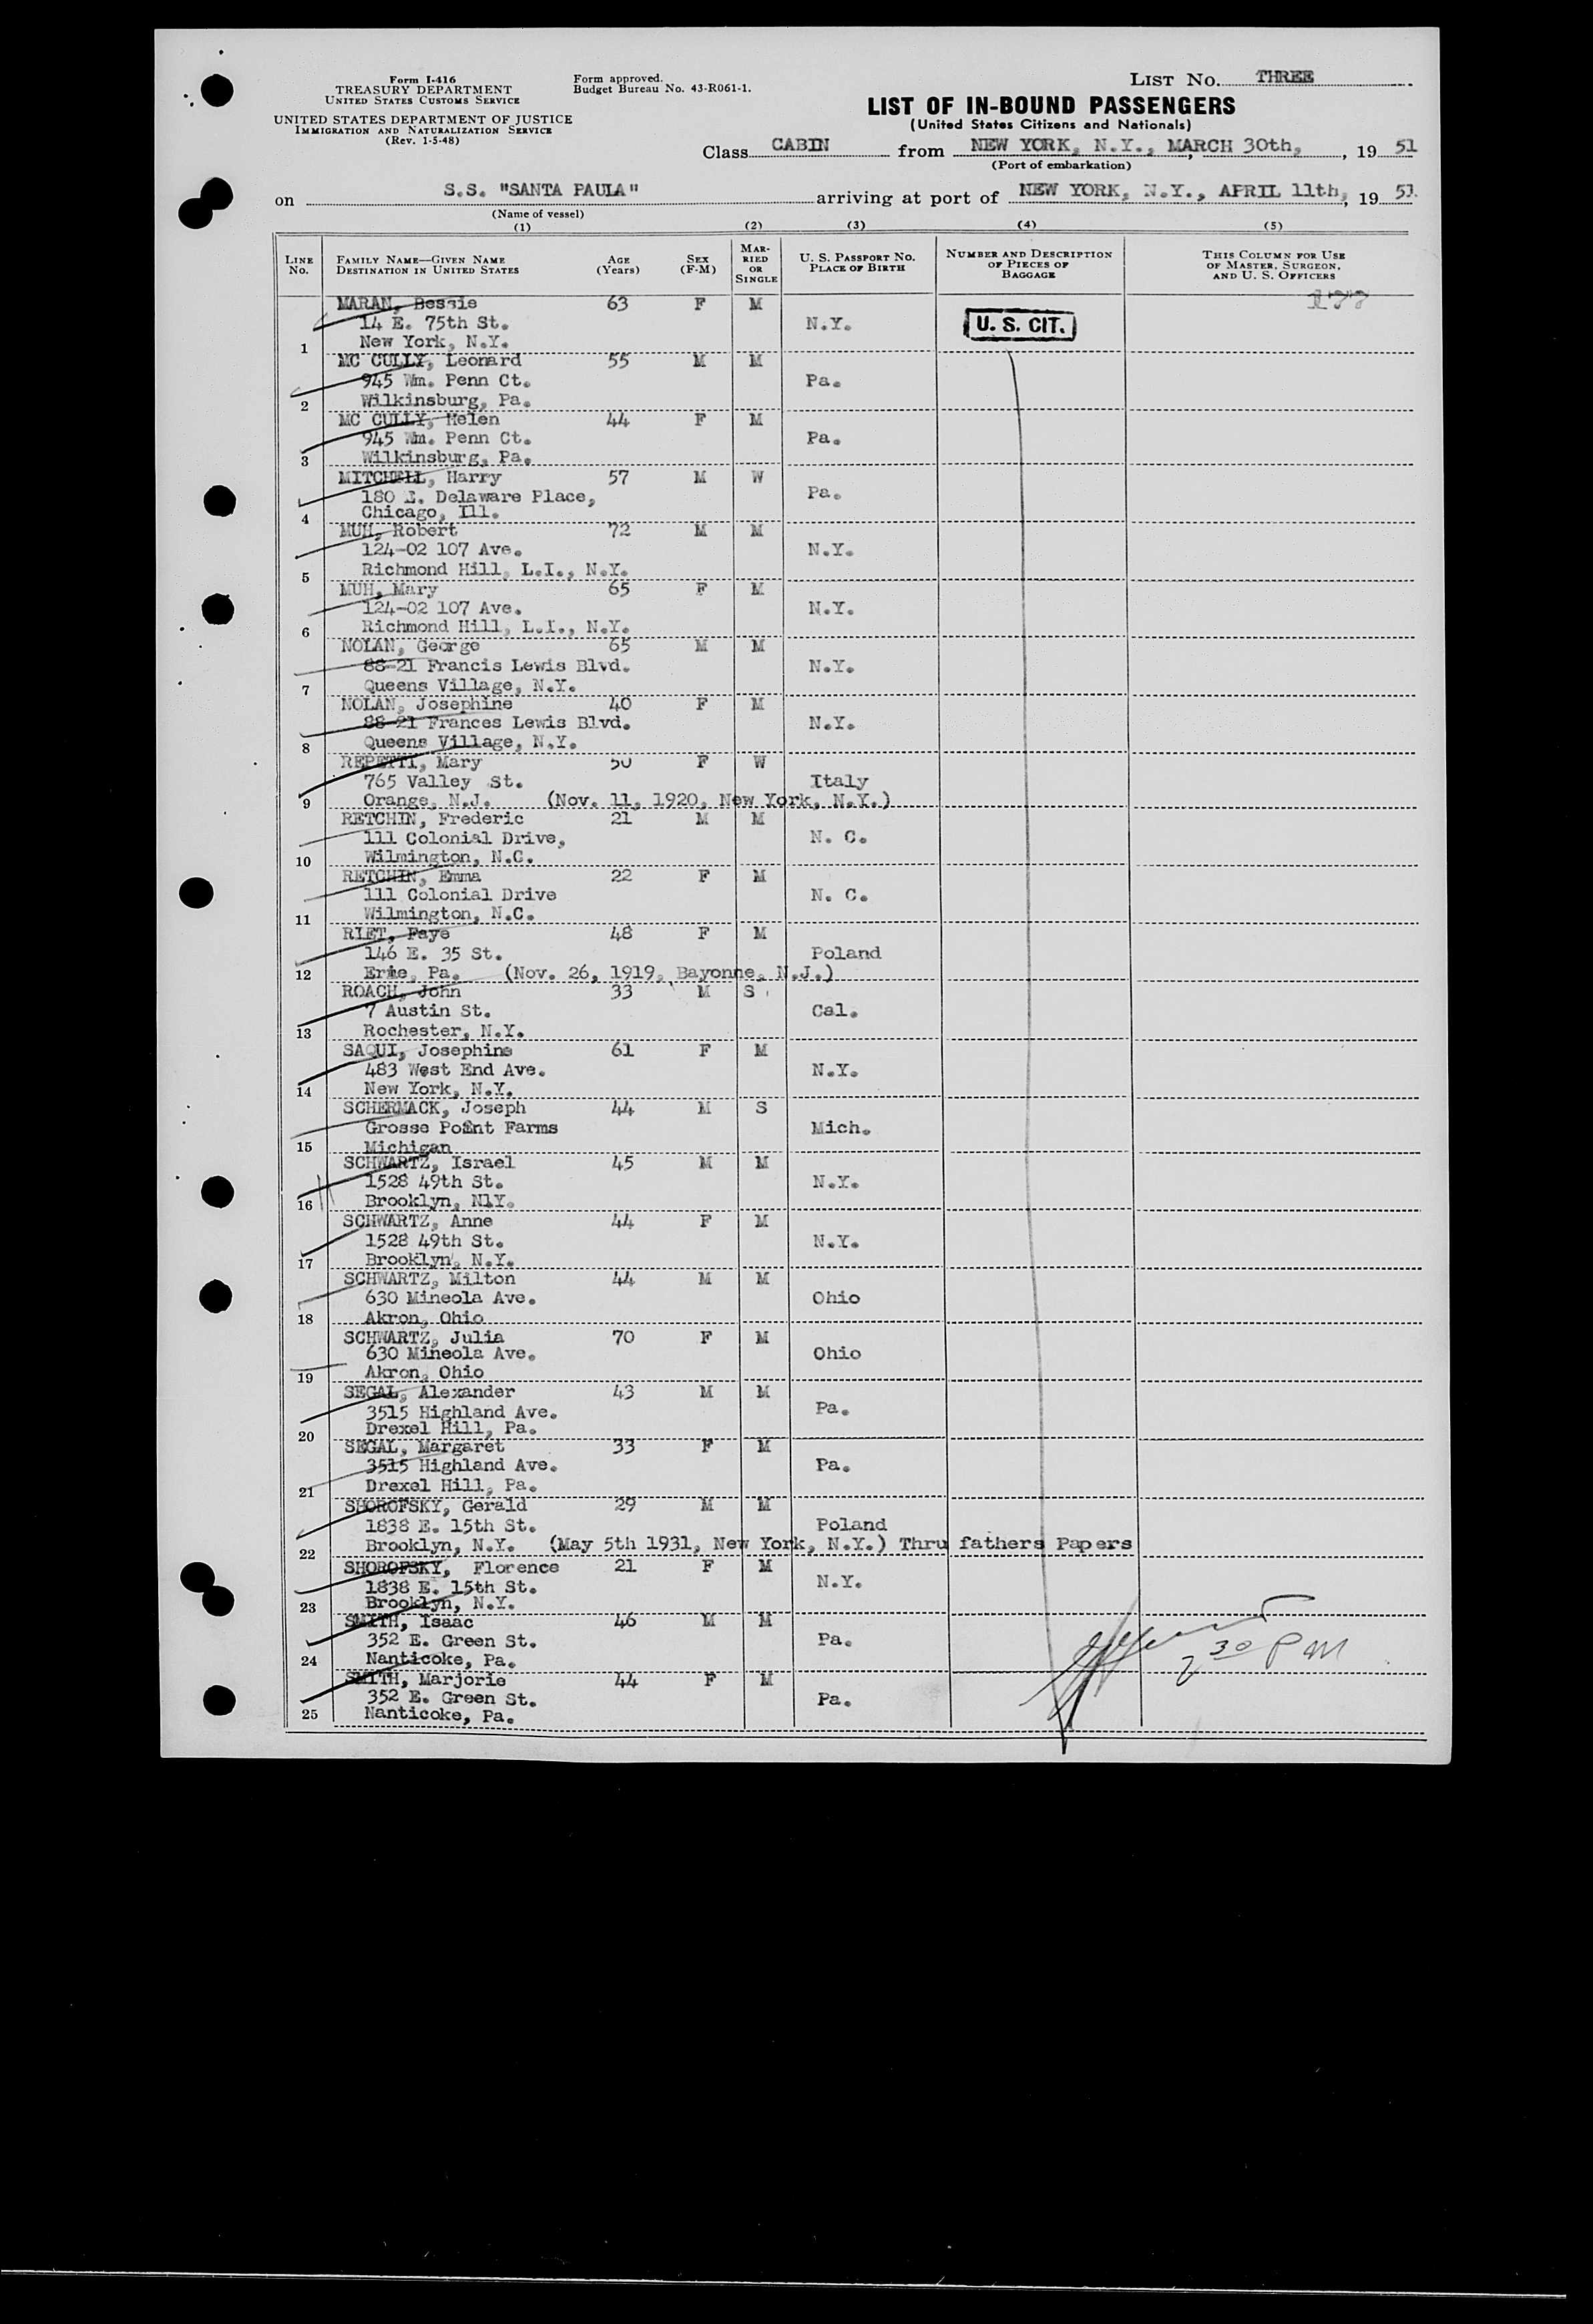 Form I-416
TREASURY DEPARTMENT
UNITED STATES CUSTOMS SERVICE
UNITED STATES DEPARTMENT OF JUSTICE
IMMIGRATION AND NATURALIZATION SERVICE
(Rev. 1-5-48)
Form approved.
Budget Bureau No. 43-R061-1.
LIST NO. THREE
LIST OF IN-BOUND PASSENGERS
(United States Citizens and Nationals)
Class CABIN from NEW YORK, N.Y., MARCH 30th, , 19 51
(Port of embarkation)
on S.S. "SANTA PAULA" arriving at port of NEW YORK, N.Y., APRIL 11th, 19 51
(Name of vessel)
(1) (2) (3) (4) (5)
LINE NO. FAMILY NAME—GIVEN NAME DESTINATION IN UNITED STATES AGE (Years) SEX (F-M) MARRIED OR SINGLE U. S. PASSPORT NO. PLACE OF BIRTH NUMBER AND DESCRIPTION OF PIECES OF BAGGAGE THIS COLUMN FOR USE OF MASTER, SURGEON, AND U. S. OFFICERS
MARAN, Bessie 63 F M
14 E. 75th St. N.Y. U. S. CIT.
1 New York, N.Y.
MC CULLY, Leonard 55 M M
945 Wm. Penn Ct. Pa.
2 Wilkinsburg, Pa.
MC CULLY, Helen 44 F M
945 Wm. Penn Ct. Pa.
3 Wilkinsburg, Pa.
MITCHELL, Harry 57 M W
180 E. Delaware Place, Pa.
4 Chicago, Ill.
MUH, Robert 72 M M
124-02 107 Ave. N.Y.
5 Richmond Hill, L.I., N.Y.
MUH, Mary 65 F M
124-02 107 Ave. N.Y.
6 Richmond Hill, L.I., N.Y.
NOLAN, George 65 M M
88-21 Francis Lewis Blvd. N.Y.
7 Queens Village, N.Y.
NOLAN, Josephine 40 F M
88-21 Frances Lewis Blvd. N.Y.
8 Queens Village, N.Y.
REPETTI, Mary 50 F W
765 Valley St. Italy
9 Orange, N.J. (Nov. 11, 1920, New York, N.Y.)
RETCHIN, Frederic 21 M M
111 Colonial Drive, N. C.
10 Wilmington, N.C.
RETCHIN, Emma 22 F M
111 Colonial Drive N. C.
11 Wilmington, N.C.
RIET, Faye 48 F M
146 E. 35 St. Poland
12 Erie, Pa. (Nov. 26, 1919, Bayonne, N.J.)
ROACH, John 33 M S
7 Austin St. Cal.
13 Rochester, N.Y.
SAQUI, Josephine 61 F M
483 West End Ave. N.Y.
14 New York, N.Y.
SCHERMACK, Joseph 44 M S
Grosse Point Farms Mich.
15 Michigan
SCHWARTZ, Israel 45 M M
1528 49th St. N.Y.
16 Brooklyn, N1Y.
SCHWARTZ, Anne 44 F M
1528 49th St. N.Y.
17 Brooklyn, N.Y.
SCHWARTZ, Milton 44 M M
630 Mineola Ave. Ohio
18 Akron, Ohio
SCHWARTZ, Julia 70 F M
630 Mineola Ave. Ohio
19 Akron, Ohio
SEGAL, Alexander 43 M M
3515 Highland Ave. Pa.
20 Drexel Hill, Pa.
SEGAL, Margaret 33 F M
3515 Highland Ave. Pa.
21 Drexel Hill, Pa.
SHOROFSKY, Gerald 29 M M
1838 E. 15th St. Poland
22 Brooklyn, N.Y. (May 5th 1931, New York, N.Y.) Thru fathers Papers
SHOROFSKY, Florence 21 F M
1838 E. 15th St. N.Y.
23 Brooklyn, N.Y.
SMITH, Isaac 46 M M
352 E. Green St. Pa. 2 30 PM
24 Nanticoke, Pa.
SMITH, Marjorie 44 F M
352 E. Green St. Pa.
25 Nanticoke, Pa.